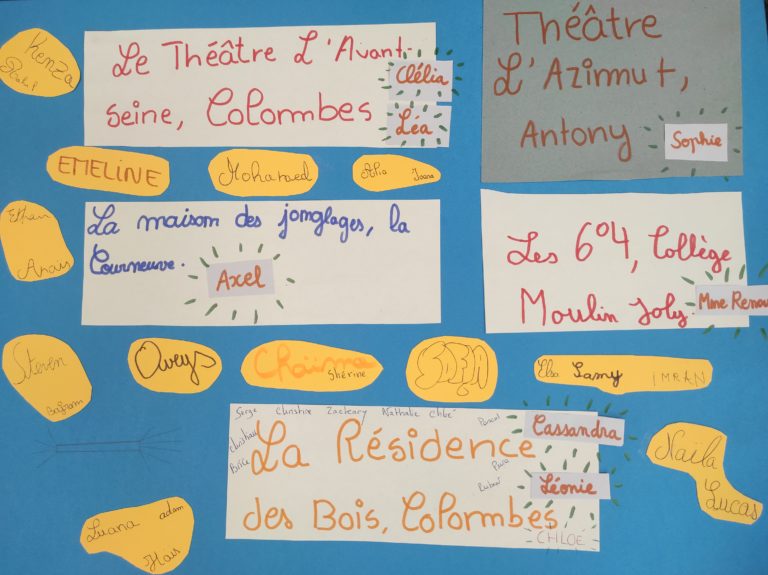 Kenza
Le Théâtre L'Avant-
seine, Colombes
Clélia
Léa
Théâtre
L'Azimut,
Antony
Sophie
EMELINE
Mohamed
Ioana
Ethan
Anaïs
La maison des jonglages, la
Courneuve.
Axel
Les 6°4, Collège
Moulin Joly.
Mme Renou
Steven
Oweys
Chaïma
Shérine
SOFIA
Elsa Samy IMRAN
Serge Christine Zackeary Nathalie Chloé Pascal
Christian
Brice
La Résidence
des Bois, Colombes
Cassandra
Léonie
CHLOE
Naïla
Lucas
Luana adam